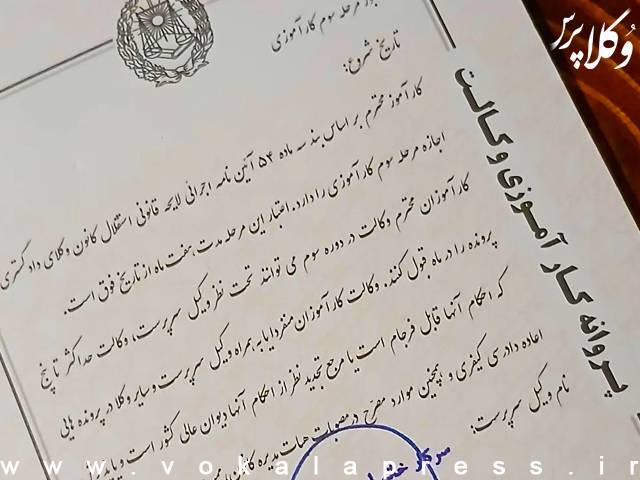 وکلاپرس
مرحله سوم کارآموزی
تاریخ شروع:
کارآموز محترم بر اساس بند سه ماده ۵۴ آئین نامه اجرائی لایحه قانونی استقلال کانون وکلای دادگستری
اجازه مرحله سوم کارآموزی را دارد. اعتبار این مرحله مدت، هفت ماه از تاریخ فوق است.
کارآموزان محترم وکالت در دوره سوم می توانند تحت نظر وکیل سرپرست، وکالت حداکثر تا پنج
پرونده را در ماه قبول کنند. وکالت کارآموزان منفردا یا به همراه وکیل سرپرست و سایر وکلا در پرونده هایی
که احکام آنها قابل فرجام است یا مرجع تجدید نظر از احکام آنها دیوان عالی کشور است و یا
اعاده دادرسی کیفری و همچنین موارد مصرح در مصوبات هیات مدیره کانون
نام وکیل سرپرست:
سرکار
پروانه کار آموزی وکالت
www.vokalapress.ir